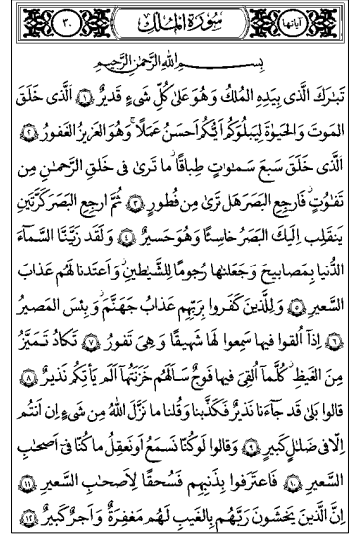 آياتها سُورَةُ المُلكِ ٣٠
بِسْمِ اللهِ الرَّحْمٰنِ الرَّحِيمِ
تَبٰرَكَ الَّذى بِيَدِهِ المُلكُ وَهُوَ عَلىٰ كُلِّ شَىءٍ قَديرٌ ﴿١﴾ الَّذى خَلَقَ
المَوتَ وَالحَيوٰةَ لِيَبلُوَكُم اَيُّكُم اَحسَنُ عَمَلًا ۚ وَهُوَ العَزيزُ الغَفورُ ﴿٢﴾
الَّذى خَلَقَ سَبعَ سَمٰوٰتٍ طِباقًا ۖ ما تَرىٰ فى خَلقِ الرَّحمٰنِ مِن
تَفٰوُتٍ ۖ فَارجِعِ البَصَرَ هَل تَرىٰ مِن فُطورٍ ﴿٣﴾ ثُمَّ ارجِعِ البَصَرَ كَرَّتَينِ
يَنقَلِب اِلَيكَ البَصَرُ خاسِئًا وَهُوَ حَسيرٌ ﴿٤﴾ وَلَقَد زَيَّنَّا السَّماءَ
الدُّنيا بِمَصابيحَ وَجَعَلنٰها رُجومًا لِلشَّيٰطينِ ۖ وَاَعتَدنا لَهُم عَذابَ
السَّعيرِ ﴿٥﴾ وَلِلَّذينَ كَفَروا بِرَبِّهِم عَذابُ جَهَنَّمَ ۖ وَبِئسَ المَصيرُ
﴿٦﴾ اِذا اُلقوا فيها سَمِعوا لَها شَهيقًا وَهِىَ تَفورُ ﴿٧﴾ تَكادُ تَمَيَّزُ
مِنَ الغَيظِ ۖ كُلَّما اُلقِىَ فيها فَوجٌ سَاَلَهُم خَزَنَتُها اَلَم يَأتِكُم نَذيرٌ ﴿٨﴾
قالوا بَلىٰ قَد جاءَنا نَذيرٌ فَكَذَّبنا وَقُلنا ما نَزَّلَ اللهُ مِن شَىءٍ اِن اَنتُم
اِلّا فى ضَلٰلٍ كَبيرٍ ﴿٩﴾ وَقالوا لَو كُنّا نَسمَعُ اَو نَعقِلُ ما كُنّا فى اَصحٰبِ
السَّعيرِ ﴿١٠﴾ فَاعتَرَفوا بِذَنبِهِم فَسُحقًا لِاَصحٰبِ السَّعيرِ ﴿١١﴾
اِنَّ الَّذينَ يَخشَونَ رَبَّهُم بِالغَيبِ لَهُم مَغفِرَةٌ وَاَجرٌ كَبيرٌ ﴿١٢﴾